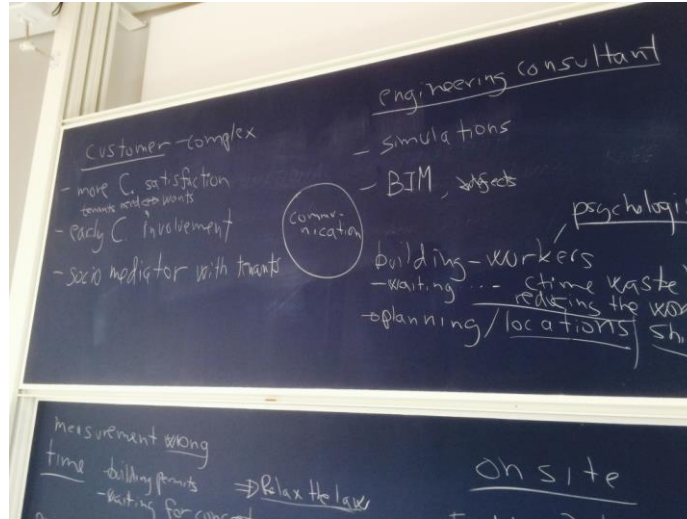 customer - complex
- more C. satisfaction
tenants needs wants
- early C. involvement
- socio mediator with tenants
commu-
nication
engineering consultant
- simulations
- BIM,
psychologis
building - workers
- waiting ... (time waste
reducing the wor
→planning/locations/ shi
measurement wrong
time - building permits ⇒ Relax the laws
- waiting for
on site